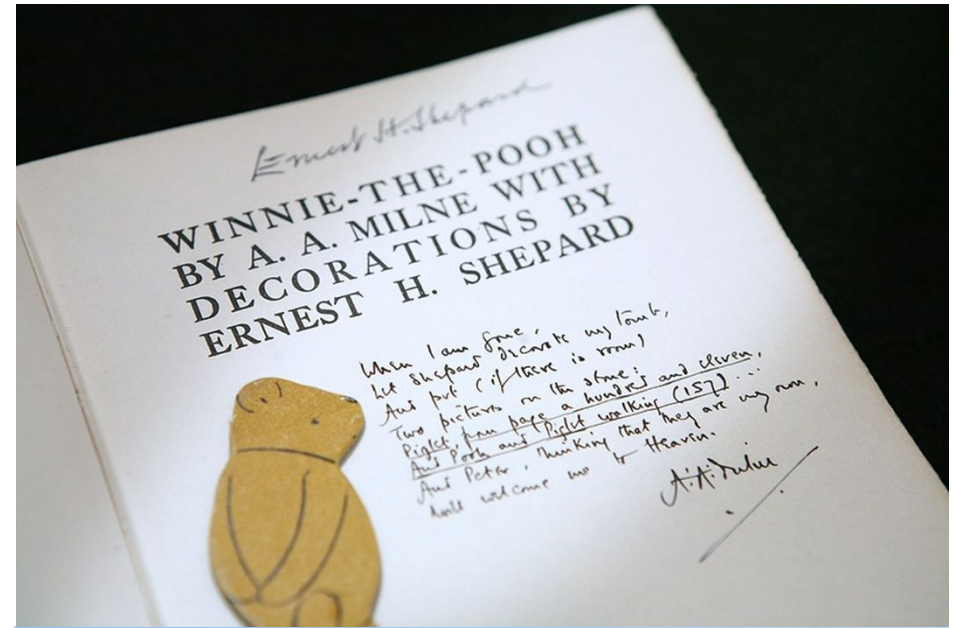 Ernest H. Shepard
WINNIE-THE-POOH
BY A. A. MILNE WITH
DECORATIONS BY
ERNEST H. SHEPARD
When I am gone,
Let Shepard decorate my tomb,
And put (if there is room)
Two pictures on the stone:
Piglet, from page a hundred and eleven,
And Pooh and Piglet walking (157) ...
And Peter, thinking that they are my own,
Will welcome me to Heaven.
A.A. Milne